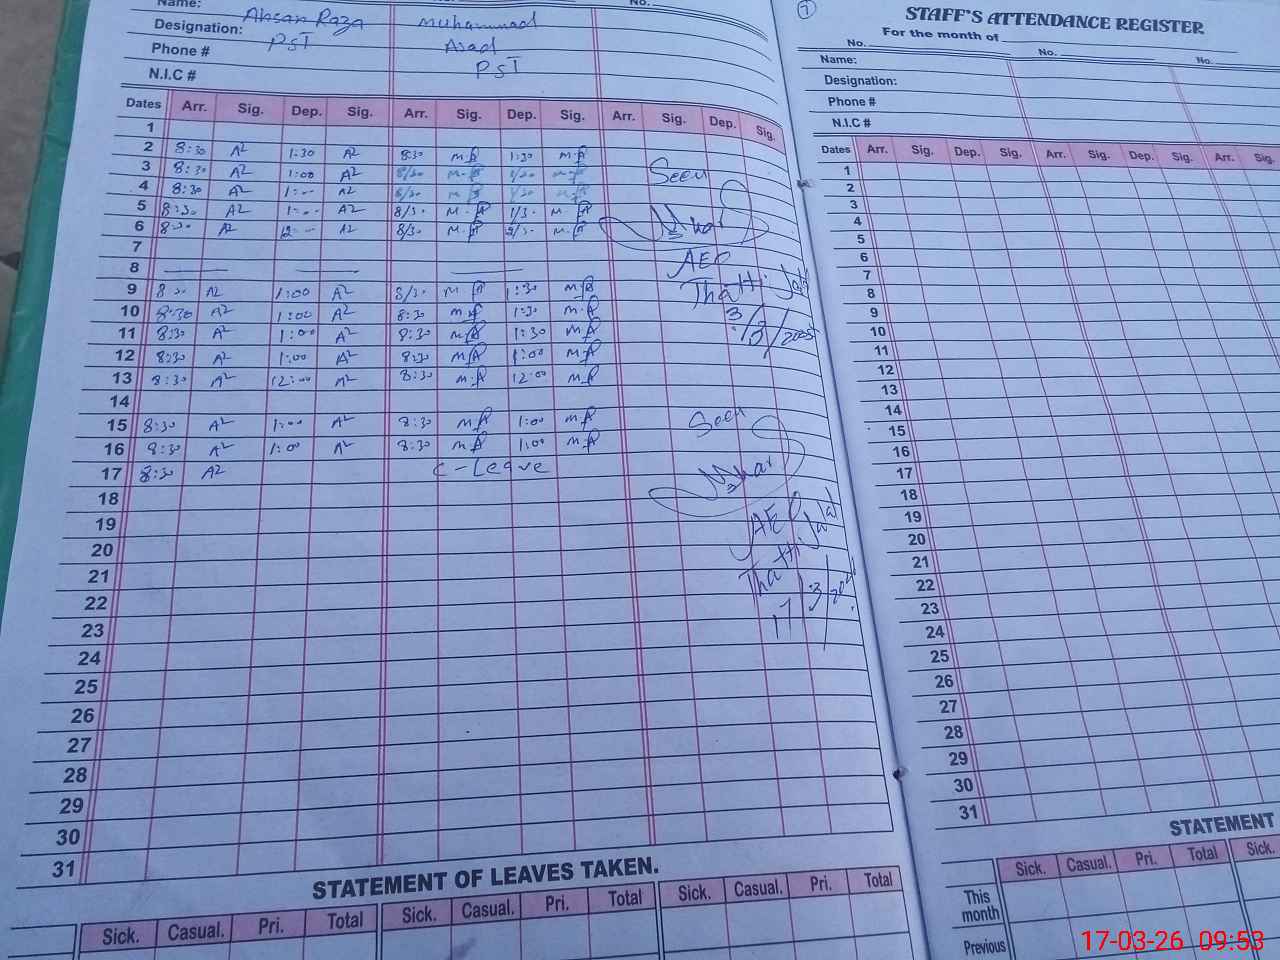 Name: Ahsan Raza Muhammad No.
Designation: PST Asad
Phone # PST
N.I.C #
Dates Arr. Sig. Dep. Sig. Arr. Sig. Dep. Sig. Arr. Sig. Dep. Sig.
1
2 8:30 A2 1:30 A2 8:30 M.A 1:30 M.A
3 8:30 A2 1:00 A2 8/30 M.A 1/30 M.A
4 8:30 A2 1:00 A2 8/30 M.A 1/30 M.A
5 8:30 A2 1:00 A2 8/30 M.A 1/30 M.A
6 8:30 A2 12:00 A2 8/30 M.A M.A
7
8
9 8:30 A2 1:00 A2 8/30 M.A 1:30 M.A
10 8:30 A2 1:00 A2 8:30 M.A 1:30 M.A
11 8:30 A2 1:00 A2 8:30 M.A 1:30 M.A
12 8:30 A2 1:00 A2 8:30 M.A 1:00 M.A
13 8:30 A2 12:00 A2 8:30 M.A 12:00 M.A
14
15 8:30 A2 1:00 A2 8:30 M.A 1:00 M.A
16 8:30 A2 1:00 A2 8:30 M.A 1:00 M.A
17 8:30 A2 C-Leave
18
19
20
21
22
23
24
25
26
27
28
29
30
31
Seen
AEO
Thatti
3/3/
Seen
AEO
Thatti
17/3/
STATEMENT OF LEAVES TAKEN.
Sick. Casual. Pri. Total Sick. Casual. Pri. Total Sick. Casual. Pri. Total
7
STAFF'S ATTENDANCE REGISTER
For the month of
No. No. No.
Name:
Designation:
Phone #
N.I.C #
Dates Arr. Sig. Dep. Sig. Arr. Sig. Dep. Sig. Arr. Sig.
1
2
3
4
5
6
7
8
9
10
11
12
13
14
15
16
17
18
19
20
21
22
23
24
25
26
27
28
29
30
31
STATEMENT
Sick. Casual. Pri. Total Sick.
This
month
Previous
17-03-26 09:53